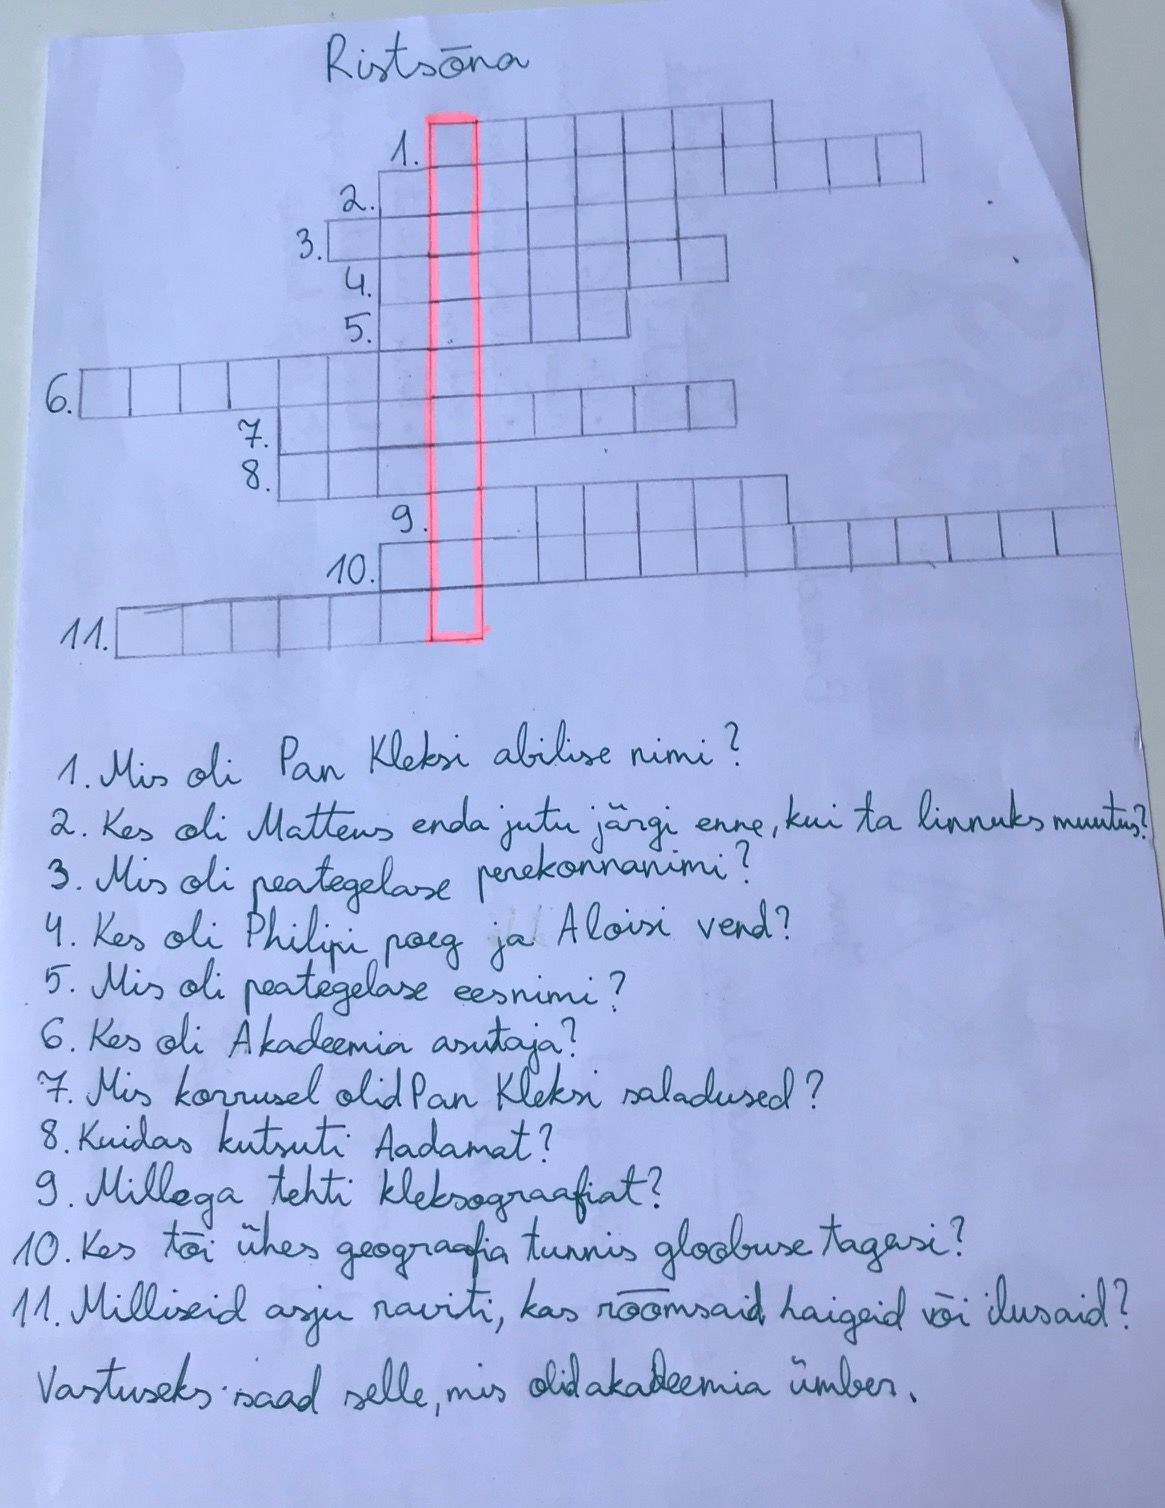 Ristsõna
1.
2.
3.
4.
5.
6.
7.
8.
9.
10.
11.
1. Mis oli Pan Kleksi abilise nimi?
2. Kes oli Matteus enda jutu järgi enne, kui ta linnuks muutus?
3. Mis oli peategelase perekonnanimi?
4. Kes oli Philipi poeg ja Aloisi vend?
5. Mis oli peategelase eesnimi?
6. Kes oli Akadeemia asutaja?
7. Mis korrusel olid Pan Kleksi saladused?
8. Kuidas kutsuti Aadamat?
9. Millega tehti kleksograafiat?
10. Kes tõi ühes geograafia tunnis gloobuse tagasi?
11. Milliseid asju raviti, kas rõõmsaid, haigeid või ilusaid?
Vastuseks saad selle, mis olid akadeemia ümber.